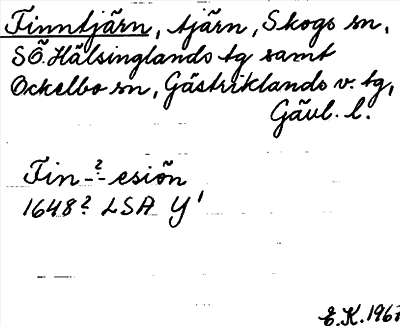 Finntjärn, tjärn, Skogs sn,
SÖ. Hälsinglands tg samt
Ockelbo sn, Gästriklands v. tg,
Gävl. l.
Fin-?-esiön
1648? LSA Y'
E.K. 1967